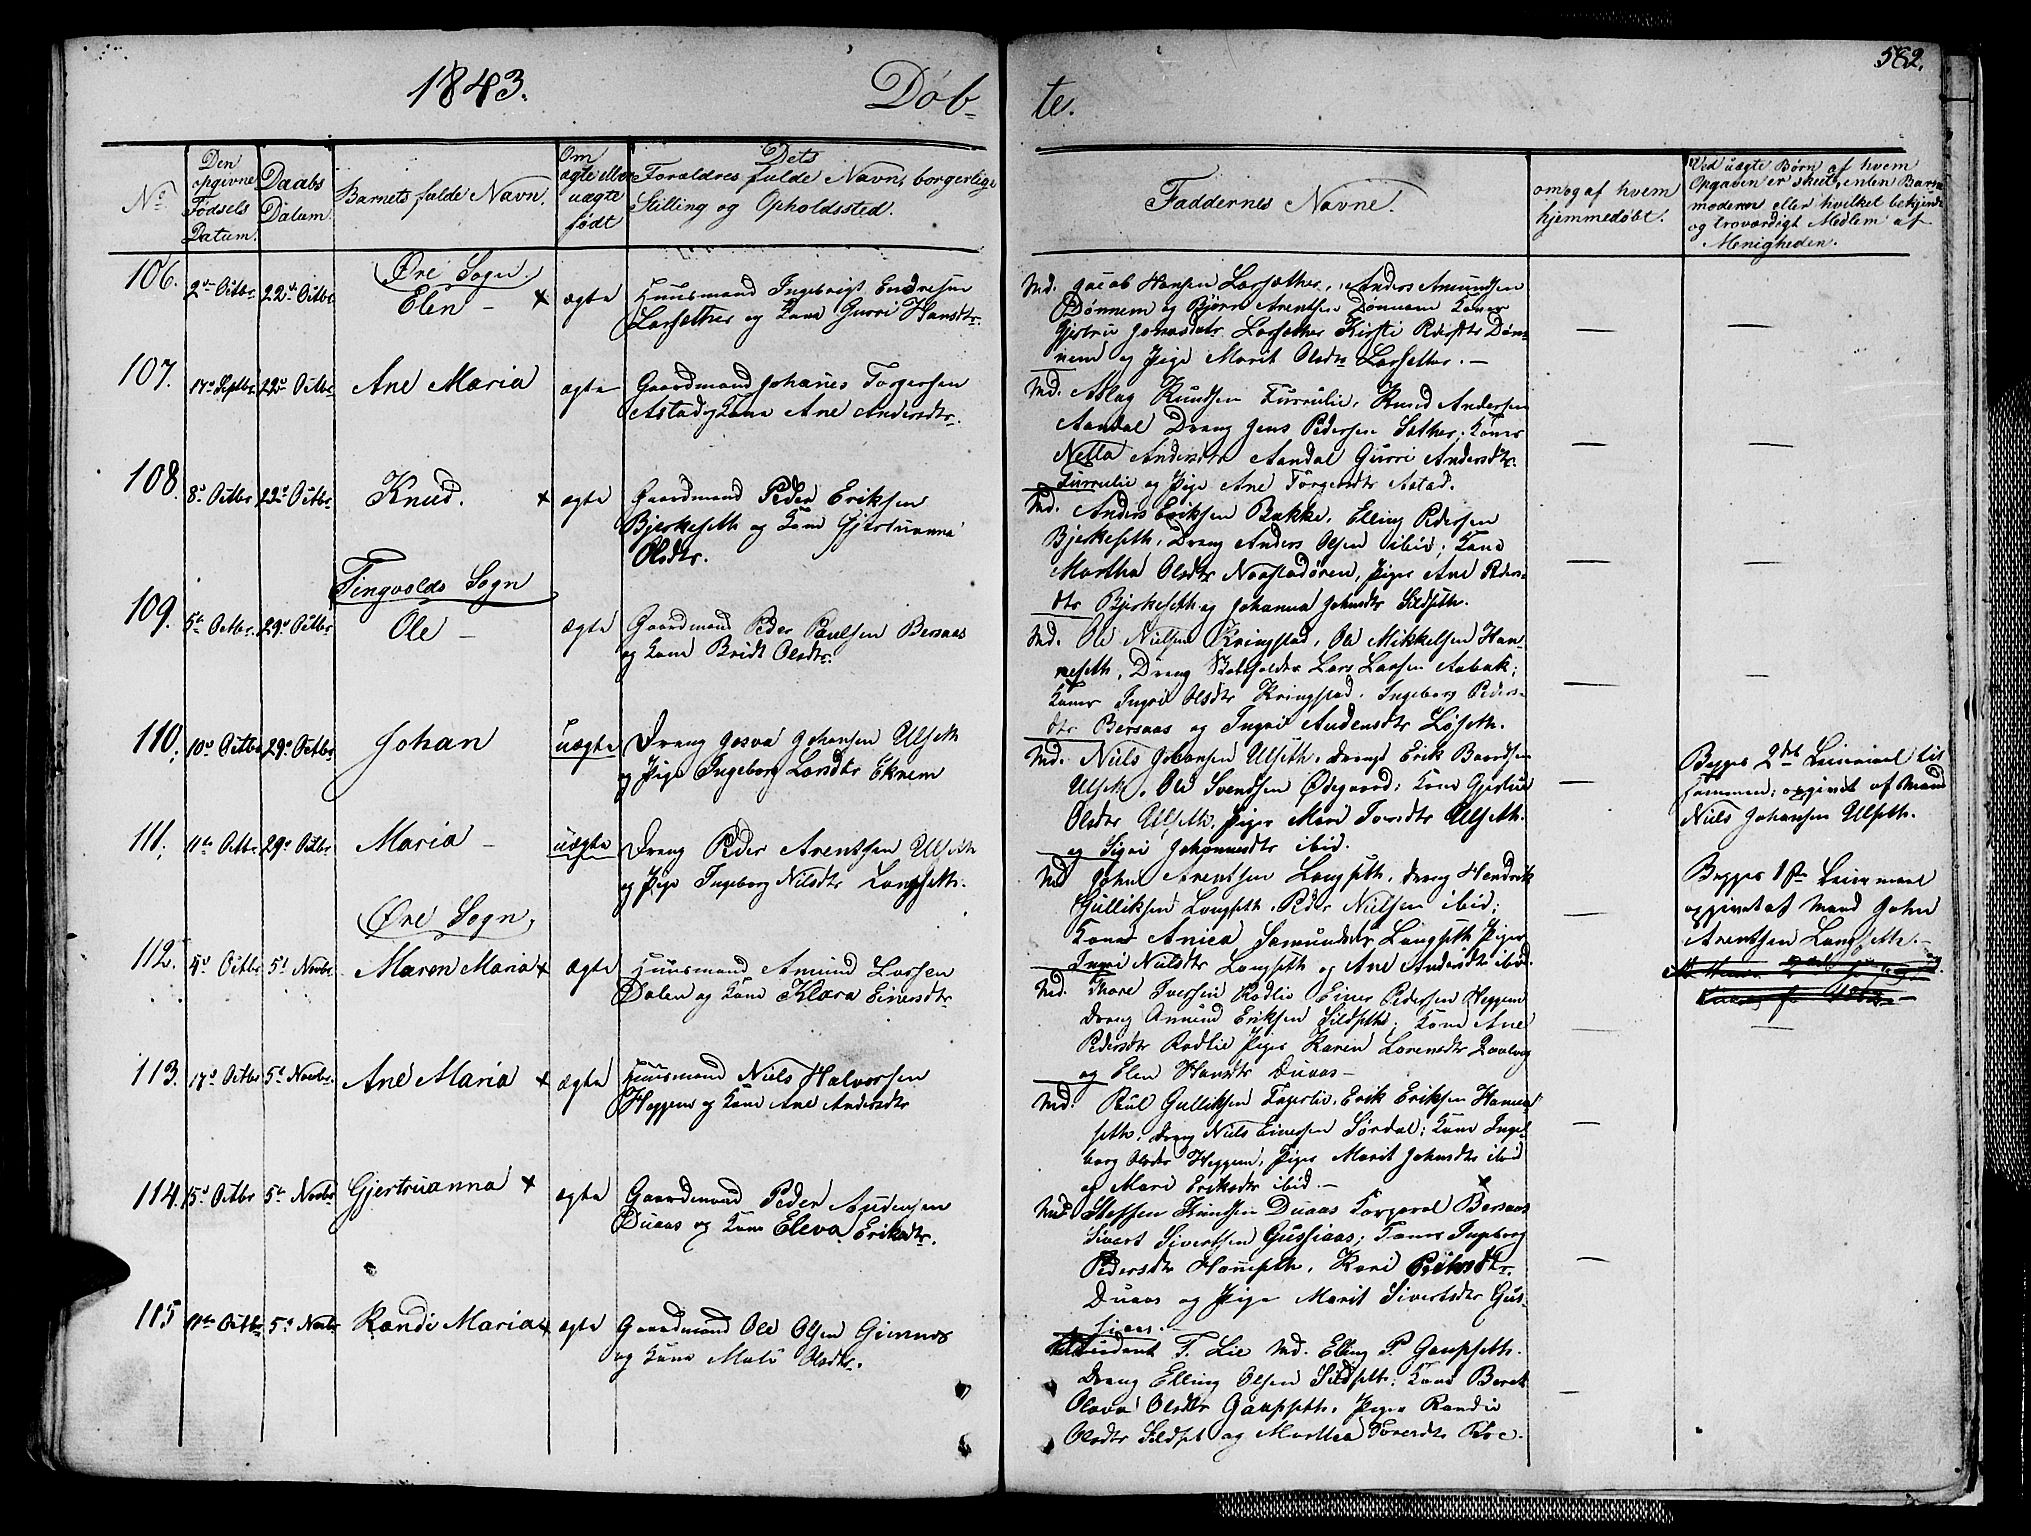 1843.
Døb-
te.
582.
No.
Den opgivne Fødsels Datum.
Daabs Datum.
Barnets fulde Navn.
Om ægte eller uægte født
Dets Forældres fulde Navn, borgerlige Stilling og Opholdssted.
Faddernes Navne.
om og af hvem hjemmedøbt.
Ved uægte Børn af hvem Opgaven er skeet, enten Barnemoderen eller hvilket bekjendt og troværdigt Medlem af Menigheden.
106.
Øre Sogn.
2den Octbr. 22de Octbr.
Elen -
ægte
Huusmand Ingebrigt Endresen
Larsæther og Kone Gurri Hansdtr.
Md. Jacob Hansen Larsæther, Anders Amundsen
Dønnem og Bjørn Arentsen Dønnem Koner
Gjertru Johnsdtr Larsæther Kirsti Pedersdtr Døn-
nem og Pige Marit Olsdtr Larsæther. -
107.
17de Septbr. 22de Octbr.
Ane Maria
ægte
Gaardmand Johanes Torgersen
Astad og Kone Ane Andersdtr.
Md. Aslag Knudsen Furrulie, Knud Andersen
Aandal Dreng Jens Pedersen Sæther, Koner
Nella Andersdtr Aandal Gurri Andersdtr.
Furrulie og Pige Ane Torgersdtr Astad.
108.
8de Octbr. 22de Octbr.
Knud.
ægte
Gaardmand Peder Eriksen
Bjerkeseth og Kone Gjertruanna
Olsdtr.
Md. Anders Eriksen Bakke, Elling Pedersen
Bjerkeseth, Dreng Anders Olsen ibid; Kone
Martha Olsdtr Naastadøren, Piger Ane Peders-
dtr Bjerkeseth og Johanna Johnsdtr Sildseth.
Tingvolds Sogn
109.
5te Octbr. 29de Octbr.
Ole -
ægte
Gaardmand Peder Paulsen Bersaas
og Kone Bridt Olsdtr.
Md. Ole Nielsen Kringstad, Ole Mikkelsen Han-
neseth, Dreng Lars Larsen Aabak;
Koner Ingri Olsdtr Kringstad, Ingeborg Peders-
dtr Bersaas og Ingri Audensdtr Løseth.
110.
10de Octbr 29de Octbr.
Johan
uægte
Dreng Josva Johansen Ulseth
og Pige Ingeborg Larsdtr Eknem
Md. Niels Johansen Ulseth, Dreng Erik Baardsen
Ulseth, Ole Svendsen Ødegaard; Kone Gjertrue
Olsdtr Ulseth, Piger Mari Toresdtr Ulseth.
og Sigri Johannesdtr ibid.
Begges 2det Leiermaal til
sammen; opgivet af Mand
Niels Johansen Ulseth.
111.
11te Octbr. 29de Octbr.
Maria -
uægte
Dreng Peder Arentsen Ulseth
og Pige Ingeborg Nilsdtr Langseth.
Md John Arentsen Langseth, Dreng Hendrik
Gulliksen Langseth, Peder Nielsen ibid;
Koner Anica Samundsdtr Langseth Piger
Ingri Nielsdtr Langseth og Ane Andersdtr ibid.
Begges 1ste Leiermaal
opgivet af Mand John
Arentsen Langseth. -
Øre Sogn,
112.
Octbr 5te Novbr.
Maren Maria
ægte
Huusmand Amund Larsen
Dalen og Kone Klara Einersdtr
Md. Thore Iversen Rodlie Einer Pedersen Heggem
Dreng Amund Eriksen Sildseth; Kone Ane
Pedersdtr Rodlie Piger Karen Lorensdtr
og Elen Hansdtr Duaas -
113.
17de Octbr 5te Novbr.
Ane Maria
ægte
Huusmand Niels Halvorsen
Heggem og Kone Ane Andersdtr
Md. Paul Gulliksen Fagerlie, Erik Eriksen Hanna-
seth, Dreng Niels Einersen Sørdal; Kone Inge-
borg Olsdtr Heggem, Piger Marit Johnsdtr ibid
og Mari Eriksdtr ibid. -
114.
15de Octbr 5te Novbr
Gjertruanna
ægte
Gaardmand Peder Audensen
Duaas og Kone Eleva Eriksdtr.
Md. Steffen Knudsen Duaas Korporal Bersaas
Sivert Sivertsen Gussiaas; Koner Ingeborg
Pedersdtr Hanseth, Kari Eriksdtr.
Duaas og Pige Marit Sivertsdtr Gus-
siaas. -
115
11te Octbr. 5te Novbr
Randi Maria
ægte
Gaardmand Ole Olsen Gimnes
og Kone Mali Olsdtr.
Student F. Lie Md. Elling P. Gaupseth.
Dreng Elling Olsen Sildseth; Kone Beret
Olava Olsdtr Gaupseth, Piger Randie
Olsdtr Sildset og Marthea Toresdtr Boe.